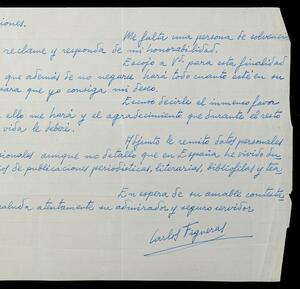 iones.
Me falta una persona de solvencia
reclame y responda de mi honorabilidad.
Escojo a Vd. para esta finalidad
que además de no negarse hará todo cuanto esté en su
para que yo consiga mi deseo.
Excuso decirle el inmenso favor
ello me hará y el agradecimiento que durante el resto
vida le deberé.
Adjunto le remito datos personales
sionales aunque no detallo que en España he vivido
de publicaciones periodísticas, literarias, bibliófilas y
En espera de su amable contesta
saluda atentamente su admirador y seguro servidor
Carlos Figueras